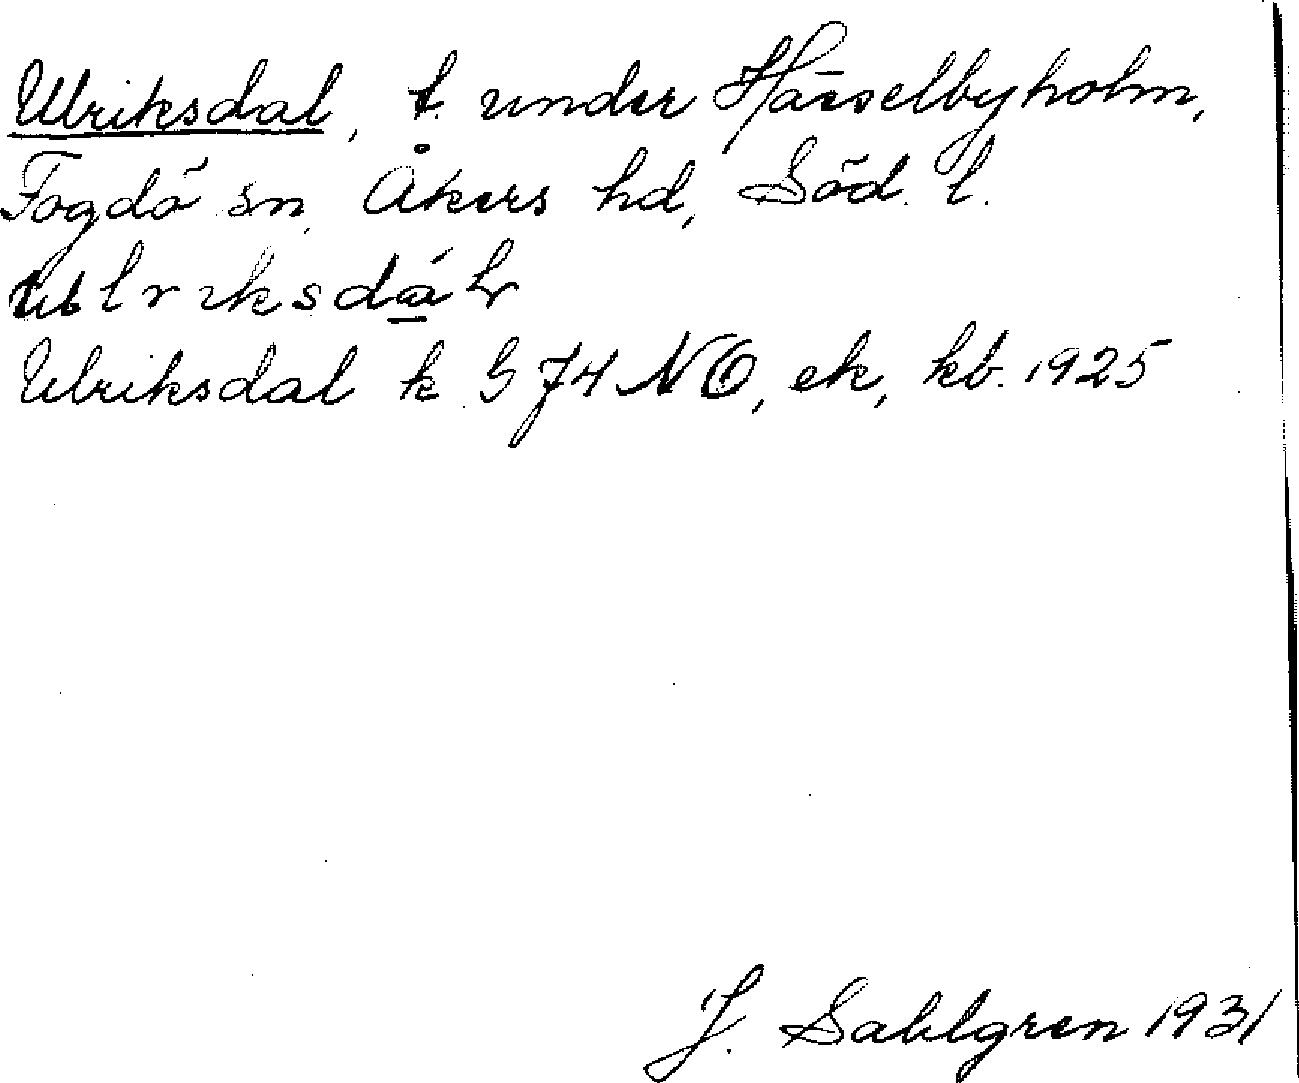 Ulriksdal, t. under Hässelbyholm,
Fogdö sn, Åkers hd, Söd. l.
Ulriksdal k G 74 NO, ek, kb. 1925
J. Sahlgren 1931